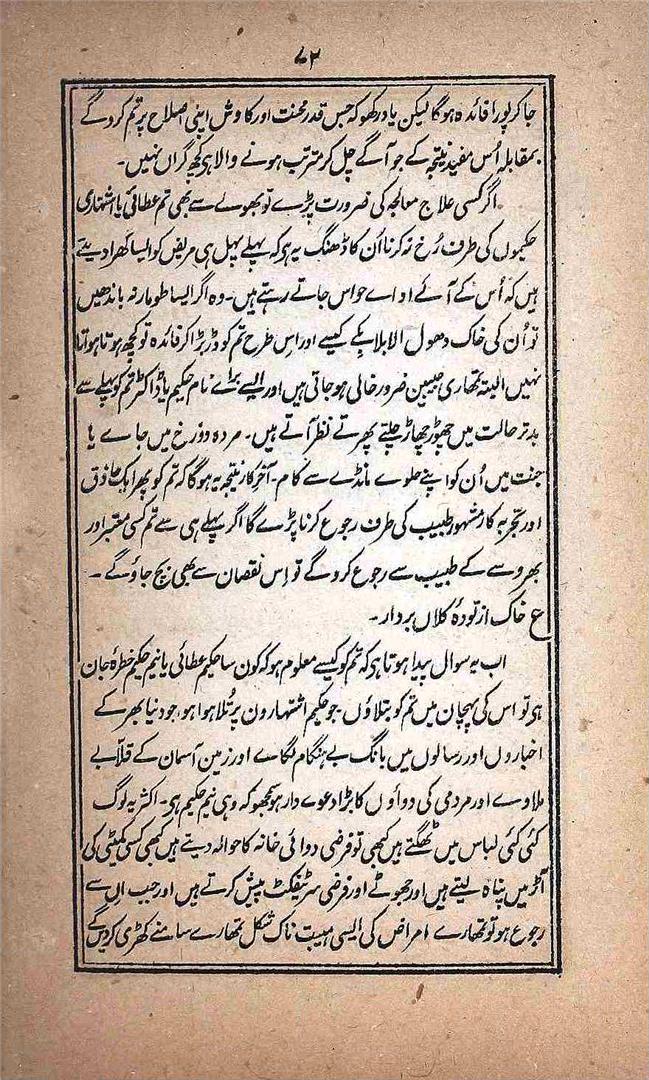 ۷۳
جاکر پورا فائدہ ہوگا لیکن یاد رکھو کہ جس قدر محنت اور کاوش اپنی اصلاح پر تم کرو گے
بمقابلہ اُس مفید نتیجہ کے جو آگے چل کر مترتب ہونے والا ہی کچھ گراں نہیں۔
اگر کسی علاج معالجہ کی ضرورت پڑے تو بھولے سے بھی تم عطائی یا اشتہاری
حکیموں کی طرف رُخ نہ کرنا اُن کا ڈھنگ یہ ہی کہ پہلے پہل ہی مریض کو ایسا گھبرا دیتے
ہیں کہ اُس کے آئے اواے حواس جاتے رہتے ہیں۔ وہ اگر ایسا طومار نہ باندھیں
تو اُن کی خاک دھول الابلا بِکے کیسے اور اِس طرح تم کو ڈربڑا کر فائدہ تو کچھ ہوتا ہواتا
نہیں البتہ تمھاری جیبیں ضرور خالی ہو جاتی ہیں اور ایسے براے نام حکیم یا ڈاکٹر تم کو پہلے سے
بدتر حالت میں چھوڑ چھاڑ چلتے پھرتے نظر آتے ہیں۔ مردہ دوزخ میں جاے یا
جنت میں اُن کو اپنے حلوے مانڈے سے کام۔ آخر کار نتیجہ یہ ہوگا کہ تم کو پھر ایک حاذق
اور تجربہ کار مشہور طبیب کی طرف رجوع کرنا پڑے گا اگر پہلے ہی سے تم کسی معتبر اور
بھروسے کے طبیب سے رجوع کرو گے تو اِس نقصان سے بھی بچ جاؤ گے۔
ع خاک از تودۂ کلاں بردار۔
اب یہ سوال پیدا ہوتا ہی کہ تم کو کیسے معلوم ہو کہ کون سا حکیم عطائی یا نیم حکیم خطرۂ جان
ہی تو اس کی پہچان میں تم کو بتلاؤں۔ جو حکیم اشتہاروں پر تُلا ہوا ہو، جو دنیا بھر کے
اخباروں اور رسالوں میں بانگ بے ہنگام لگاے اور زمین آسمان کے قلابے
ملاوے اور مردمی کی دواؤں کا بڑا دعوے دار ہو سمجھو کہ وہی نیم حکیم ہی۔ اکثر یہ لوگ
کئی کئی لباس میں ٹھگتے ہیں کبھی تو فرضی دوائی خانہ کا حوالہ دیتے ہیں کبھی کسی کمیٹی کی
آڑ میں پناہ لیتے ہیں اور جھوٹے اور فرضی سرٹیفکٹ پیش کرتے ہیں اور جب اِن سے
رجوع ہو تو تمھارے امراض کی ایسی ہیبت ناک شکل تمھارے سامنے کھڑی کر دیں گے